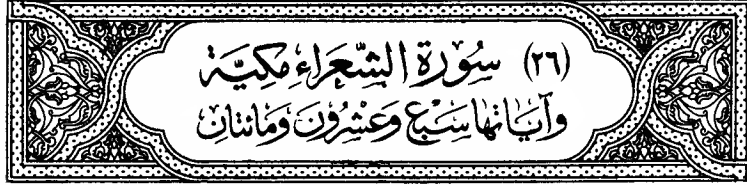 (٢٦) سُوْرَةُ الشُّعَرَاءِ مَكِيَّة
وَآيَاتُهَا سَبْعٌ وَعِشْرُونَ وَمَائتَانِ